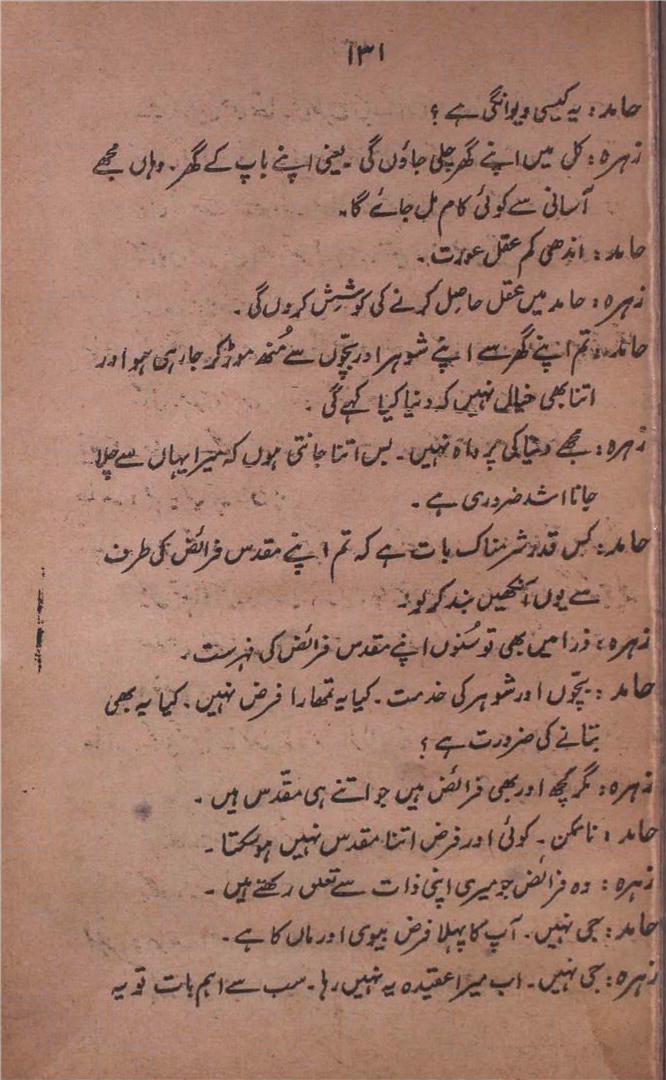 ۱۳۱
حامد: یہ کیسی دیوانگی ہے؟
زہرہ: کل میں اپنے گھر چلی جاؤں گی۔ یعنی اپنے باپ کے گھر۔ وہاں مجھے
آسانی سے کوئی کام مل جائے گا۔
حامد: اندھی کم عقل عورت۔
زہرہ: حامد میں عقل حاصل کرنے کی کوشش کروں گی۔
حامد: تم اپنے گھر سے اپنے شوہر اور بچّوں سے مُنھ موڑ کر جا رہی ہو اور
اتنا بھی خیال نہیں کہ دنیا کیا کہے گی۔
زہرہ: مجھے دنیا کی پرواہ نہیں۔ بس اتنا جانتی ہوں کہ میرا یہاں سے چلا
جانا اشد ضروری ہے۔
حامد: کس قدر شرمناک بات ہے کہ تم اپنے مقدس فرائض کی طرف
سے یوں آنکھیں بند کر لو۔
زہرہ: ذرا میں بھی تو سُنوں اپنے مقدس فرائض کی فہرست۔
حامد: بچّوں اور شوہر کی خدمت۔ کیا یہ تمھارا فرض نہیں۔ کیا یہ بھی
بتانے کی ضرورت ہے؟
زہرہ: مگر کچھ اور بھی فرائض ہیں جو اتنے ہی مقدّس ہیں۔
حامد: ناممکن۔ کوئی اور فرض اتنا مقدس نہیں ہو سکتا۔
زہرہ: وہ فرائض جو میری اپنی ذات سے تعلق رکھتے ہیں۔
حامد: جی نہیں۔ آپ کا پہلا فرض بیوی اور ماں کا ہے۔
زہرہ: جی نہیں۔ اب میرا عقیدہ یہ نہیں رہا۔ سب سے اہم بات تو یہ